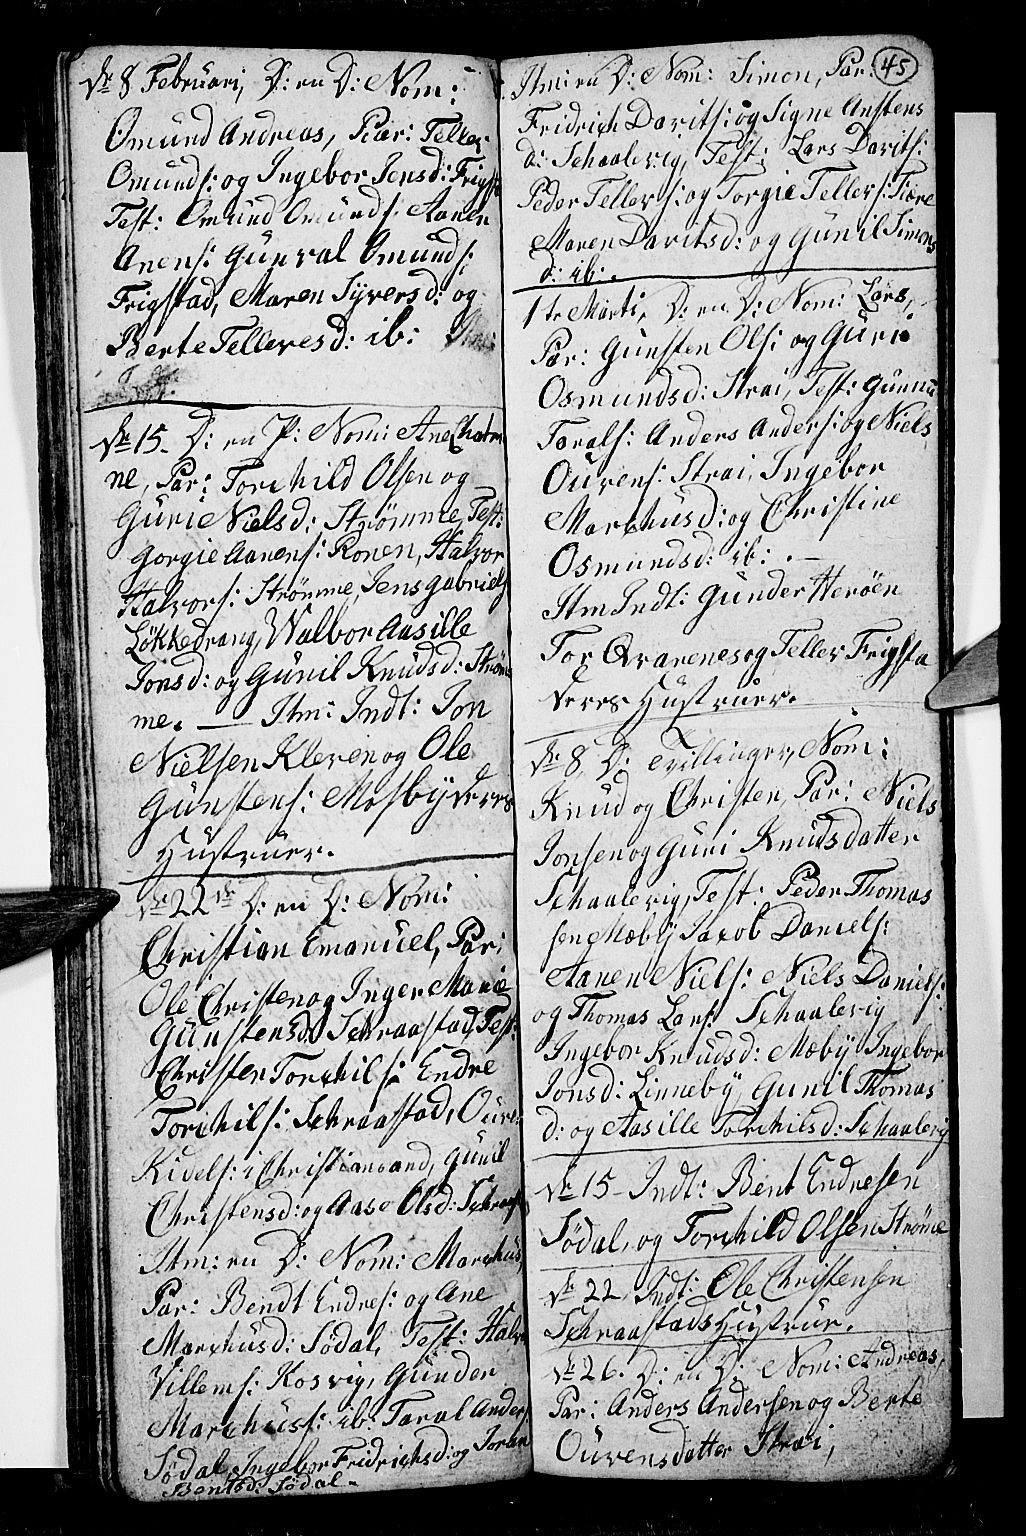 d. 8 Februari, D: en D: Nom:
Omund Andreas, Par: Teller
Omunds: og Ingebor Jensd: Frigst
Test: Omund Omunds: Aanen
Anens: Gunval Omunds:
Frigstad, Maren Syversd: og
Berte Telleresd: ib:
d. 15. D: en P: Nom: Ane Chatri
ne, Par: Torchild Olsen og
Gurie Nielsd: Strømme, Test:
Gorgie Aanens: Ronen, Halvor
Halvors: Strømme, Jens Gabriels
Løkkedrang, Walbor Aasille
Jonsd: og Gunil Knudsd: Strøm
me. — Itm: Indt: Jon
Nielsen Kleven og Ole
Gunstens: Mosbÿ deres
Hustruer.
d. 22 de D: en D: Nom:
Christian Emanuel, Par:
Ole Christen og Inger Marie
Gunstensd: Schraastad, Test:
Christen Torchils: Endre
Torchils: Schraastad, Ouven
Kidels: i Christiansand, Gunil
Christensd: og Aase Olsd: Schraast
Itm: en D: Nom: Marchus,
Par: Bendt Endres: og Ane
Marchusd: Sødal, Test: Halvor
Villems: Kosvig, Gunder
Marchuss: ib: Taral Anders
Sødal, Ingebor Fridrichsd: og Joran
Bentsd: Sødal.
45
Itm: en D: Nom: Simon, Par:
Fridrich Davits: og Signe Anstens
d: Schaalevig, Test: Lars Davits:
Peder Tellers: og Torgie Tellers: Tiore
Maren Davitsd: og Gunil Simons
d: ib:.
1 te Marti, D: en D: Nom: Lars,
Par: Gunsten Ols: og Guri
Osmundsd: Strai, Test: Gunnu
Tarals: Anders Anders: og Niels
Ouvens: Strai, Ingebor
Marchusd: og Christine
Osmundsd: ib:. —
Itm Indt: Gunder Herøen
Tor Qvarenes og Teller Frigsta
deres Hustruer.
d. 8, D: Tvillinger, Nom:
Knud og Christen, Par: Niels
Jonsen og Guri Knudsdatter
Schaalevig, Test: Peder Thomas
sen Mæbÿ Jacob Daniels:
Aanen Niels: Niels Daniels:
og Thomas Lars: Schaalevig
Ingebor Knudsd: Mæbÿ Ingebor
Jonsd: Linnebÿ, Gunil Thomas
d: og Aasille Torchilsd: Schaalevig
d. 15 - Indt: Bent Endresen
Sødal, og Torchild Olsen Strøme
d. 22 Indt: Ole Christensen
Schraastads Hustrue.
d. 26. D: en D: Nom: Andreas,
Par: Anders Andersen og Berte
Ouvensdatter Strai,